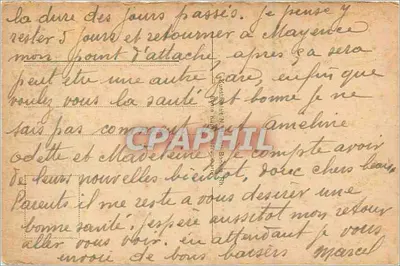 la dure des jours passés. je pense y
rester 5 jours et retourner a Mayence
mon point d'attache, après ça sera
peut être une autre gare, enfin que
voulez vous la santé est bonne je ne
sais pas comment vont ameline
odette et Madeleine, je compte avoir
de leurs nouvelles bientot, donc chers
Parents il me reste a vous desirer une
bonne santé. j'espère aussitot mon retour
aller vous voir. en attendant je vous
envoie de bons baisers Marcel
CPAPHIL